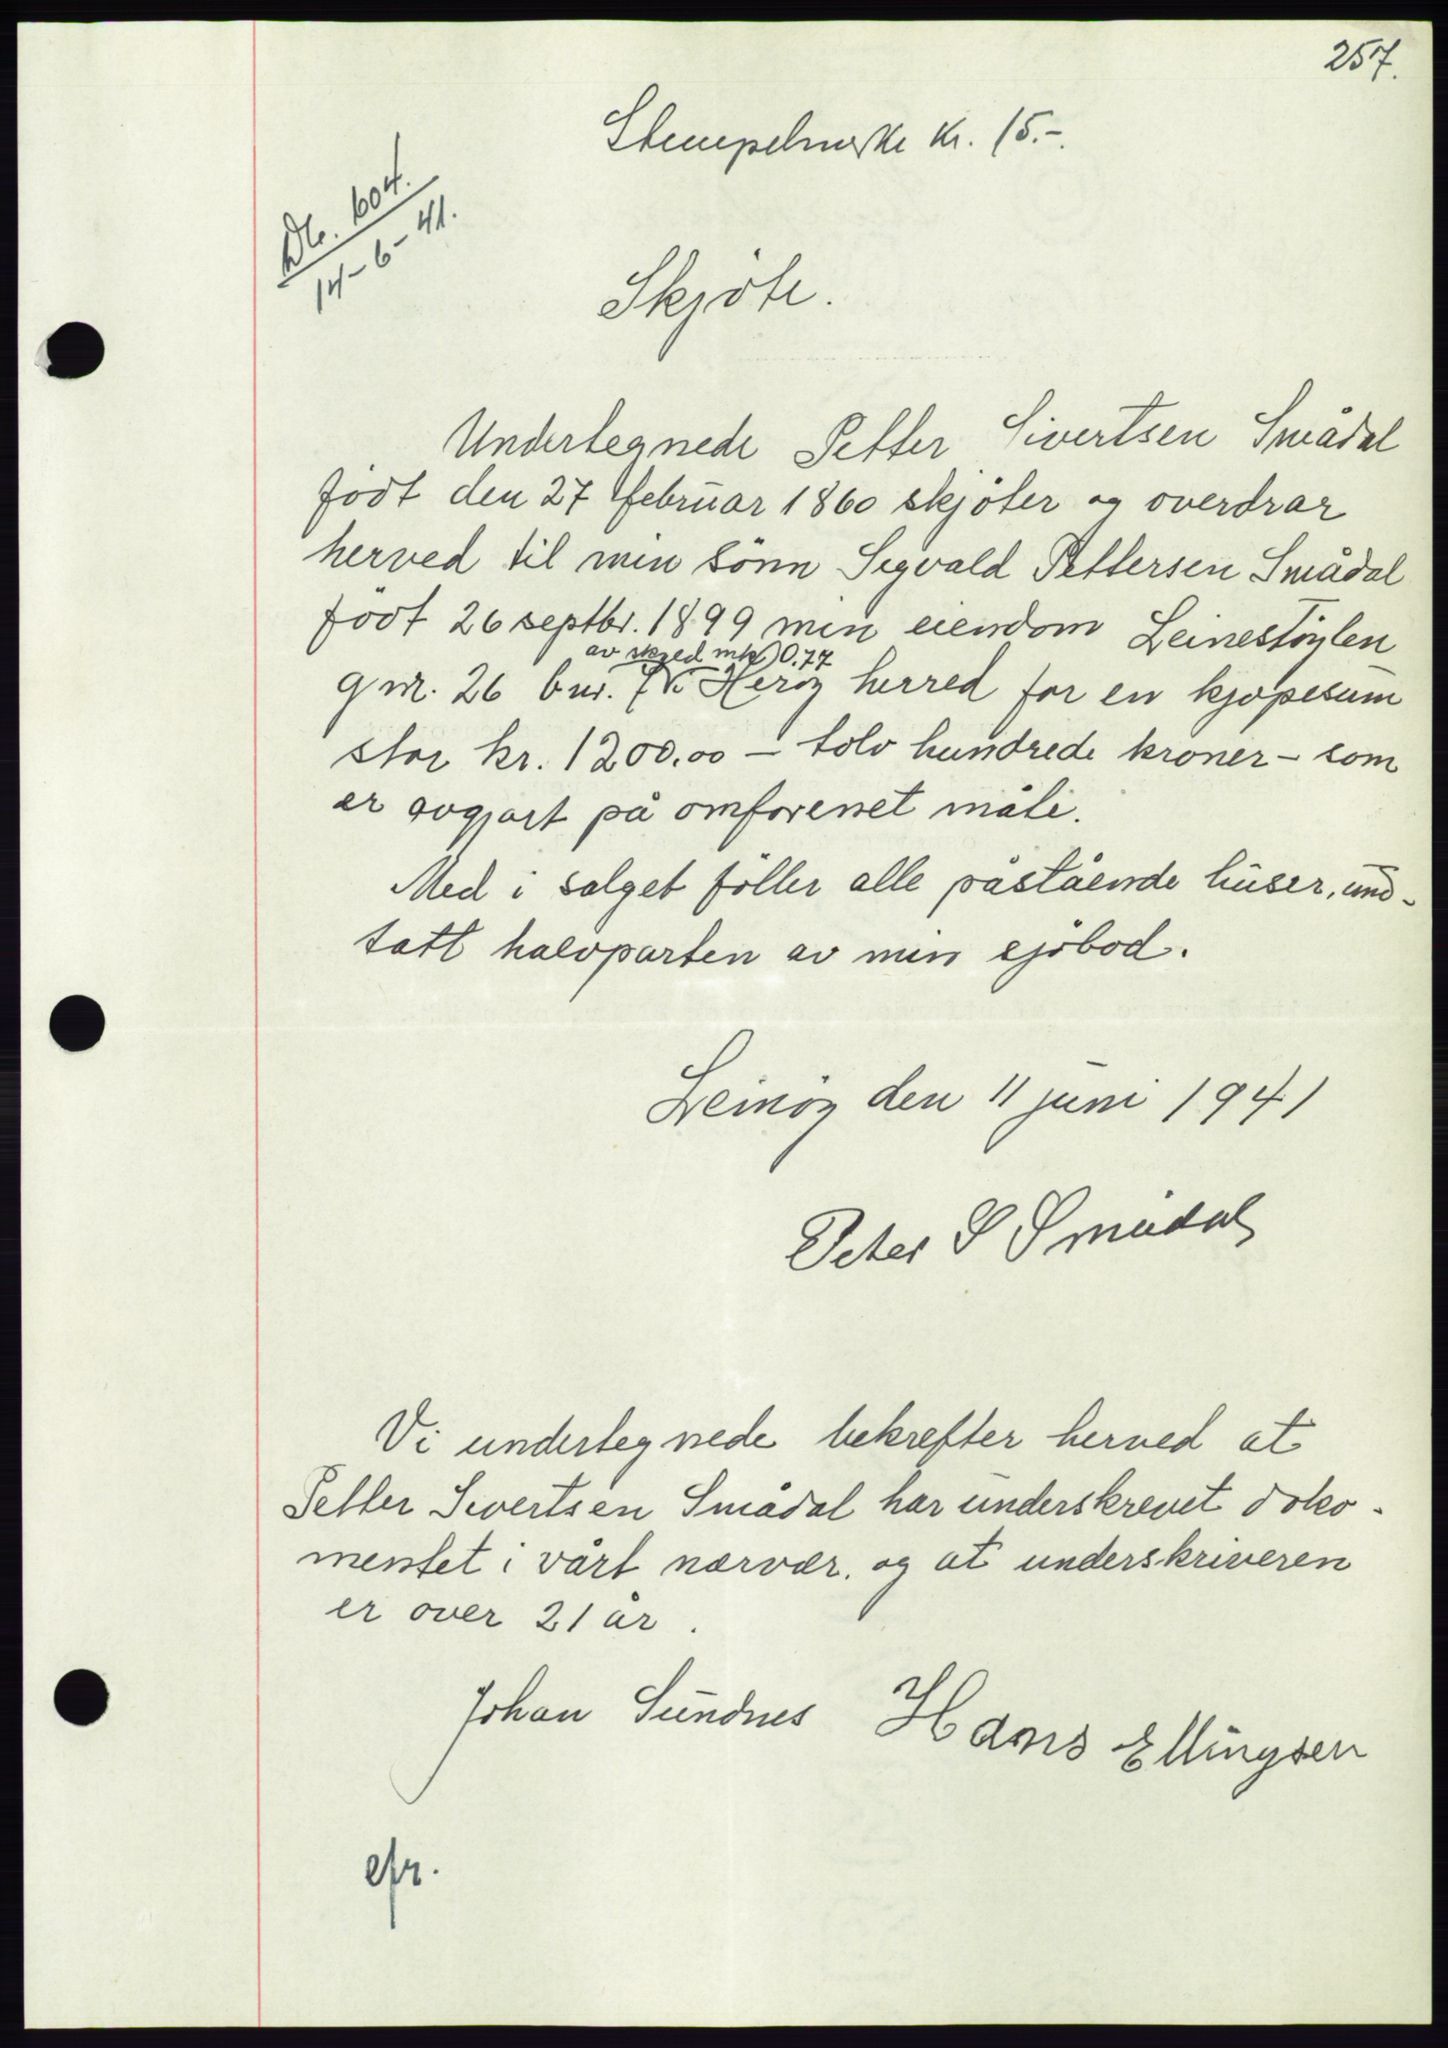 257.
Stempelmerke kr. 15.-.
Db. 604.
14-6-41.
Skjöte.
Undertegnede Petter Sivertsen Smådal
födt den 27 februar 1860 skjöter og overdrar
herved til min sönn Sigvald Pettersen Smådal
födt 26 septbr. 1899 min eiendom Leinestöylen
av skyld mk 0.77
g nr. 26 bnr. 7 i Heröy herred for en kjöpesum
stor kr. 1200.00 — tolv hundrede kroner — som
er avgjort på omforenet måte.
Med i salget föller alle påstående huser, und-
tatt halvparten av min sjöbod.
Leinöy den 11 juni 1941
Peter S Smådal
Vi undertegnede bekrefter herved at
Petter Sivertsen Smådal har underskrevet doko-
mentet i vårt nærvær. og at underskriveren
er over 21 år.
Johan Sundnes Hans Ellingsen
efr.